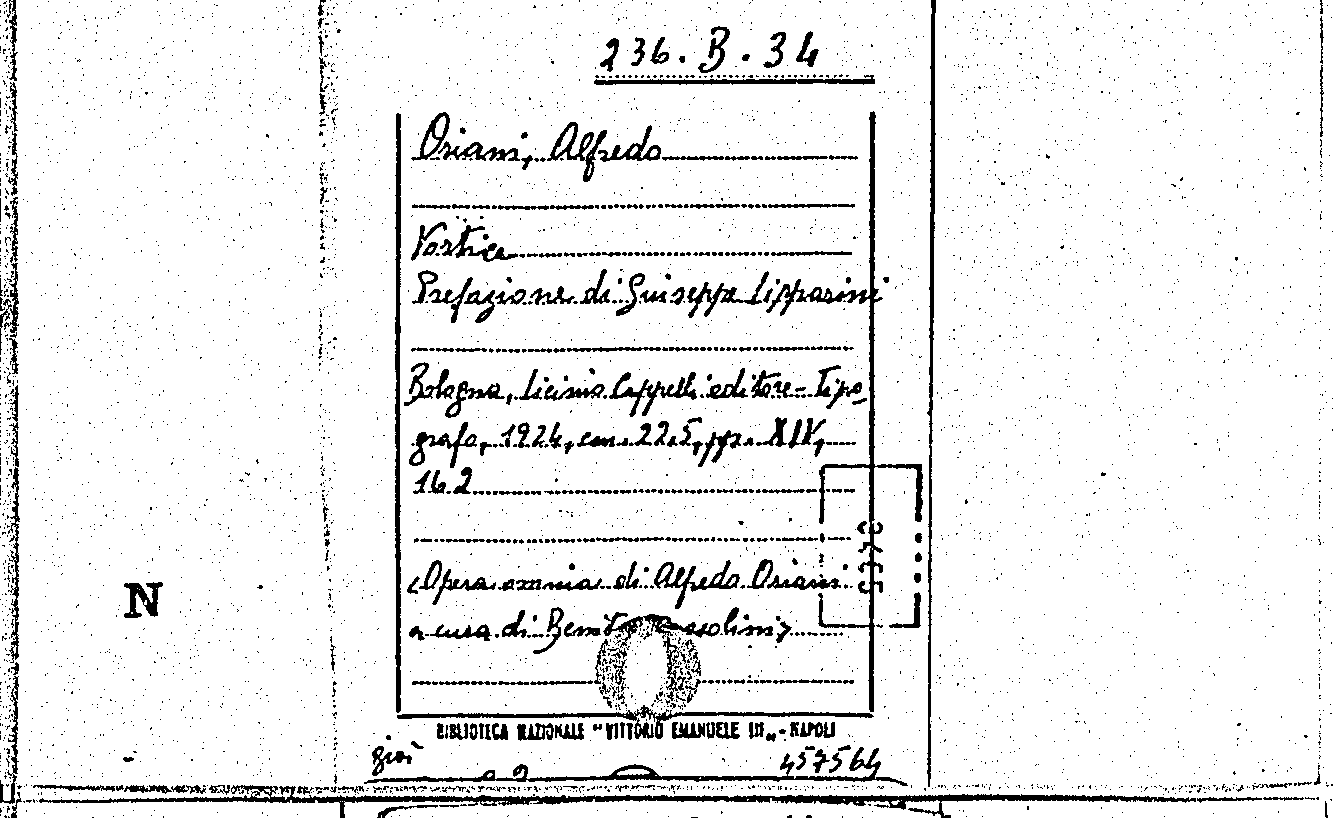 236.B.34
Oriani, Alfredo
Vortice
Prefazione di Giuseppe Lipparini
Bologna, Licinio Cappelli editore-tipo
grafo, 1924, cm. 22.5, pp. XIV,
162
<Opera omnia di Alfredo Oriani
a cura di
N
BIBLIOTECA NAZIONALE "VITTORIO EMANUELE III„ - NAPOLI
457564